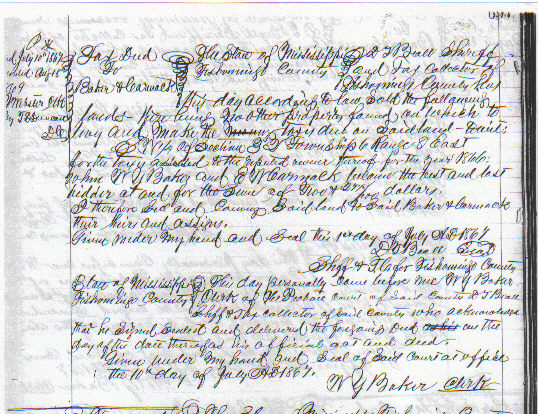 Tax Deed The State of Mississippi D T Beall Sheriff
To Tishomingo County and Tax Collector of
Baker & Carmack Tishomingo County has
this day according to law sold the following
lands - there being no other property found on which to
levy and make the taxes due on said land - to wit:
of Section 33 Township 6 Range 8 East
for the taxes assessed to the reputed owner thereof for the year 1866
when W Y Baker and E W Carmack became the best and last
bidder at and for the sum of two & dollars.
I therefore sell and convey said land to said Baker & Carmack
their heirs and assigns.
Given under my hand and seal this 1st day of July AD 1867
D T Beall Seal
Shff & T Tishomingo County
State of Mississippi This day personally came before me W Y Baker
Tishomingo County Clerk of the Probate court of said County D T Beall
Shff & Tax collector of said county who acknowledged
that he signed sealed and delivered the foregoing deed on the
day & year date thereof as his official act and deed.
Given under my hand and seal of said court at office
the 10th day of July AD 1867.
W Y Baker Clerk